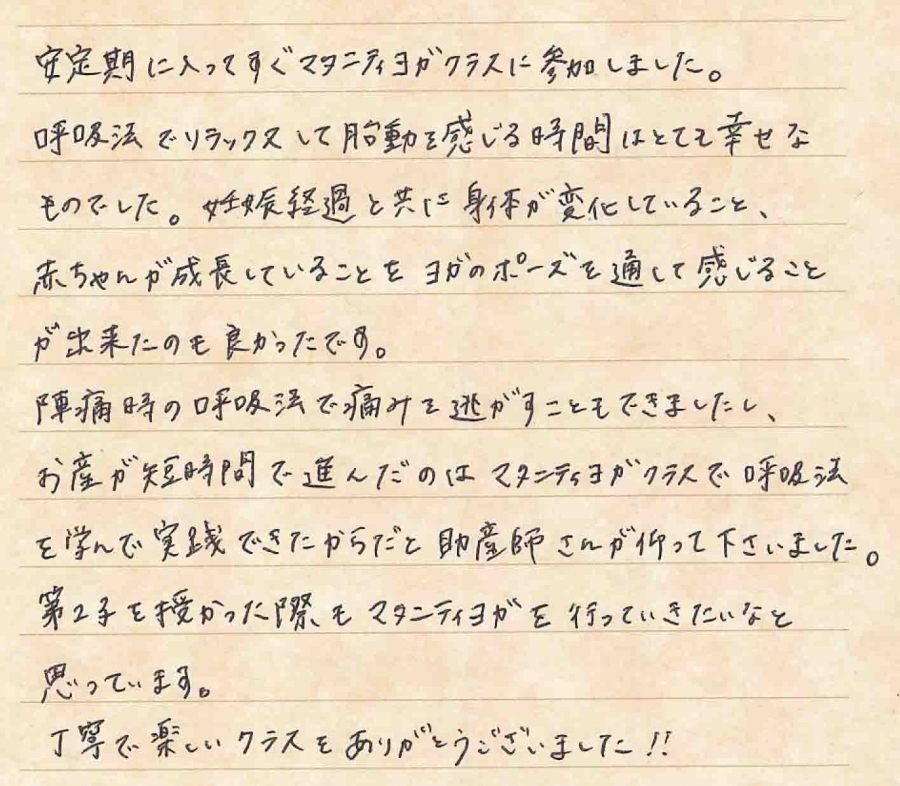 安定期に入ってすぐマタニティヨガクラスに参加しました。
呼吸法でリラックスして胎動を感じる時間はとても幸せな
ものでした。妊娠経過と共に身体が変化していること、
赤ちゃんが成長していることをヨガのポーズを通して感じること
が出来たのも良かったです。
陣痛時の呼吸法で痛みを逃がすこともできましたし、
お産が短時間で進んだのはマタニティヨガクラスで呼吸法
を学んで実践できたからだと助産師さんが仰って下さいました。
第2子を授かった際もマタニティヨガを行っていきたいなと
思っています。
丁寧で楽しいクラスをありがとうございました!!